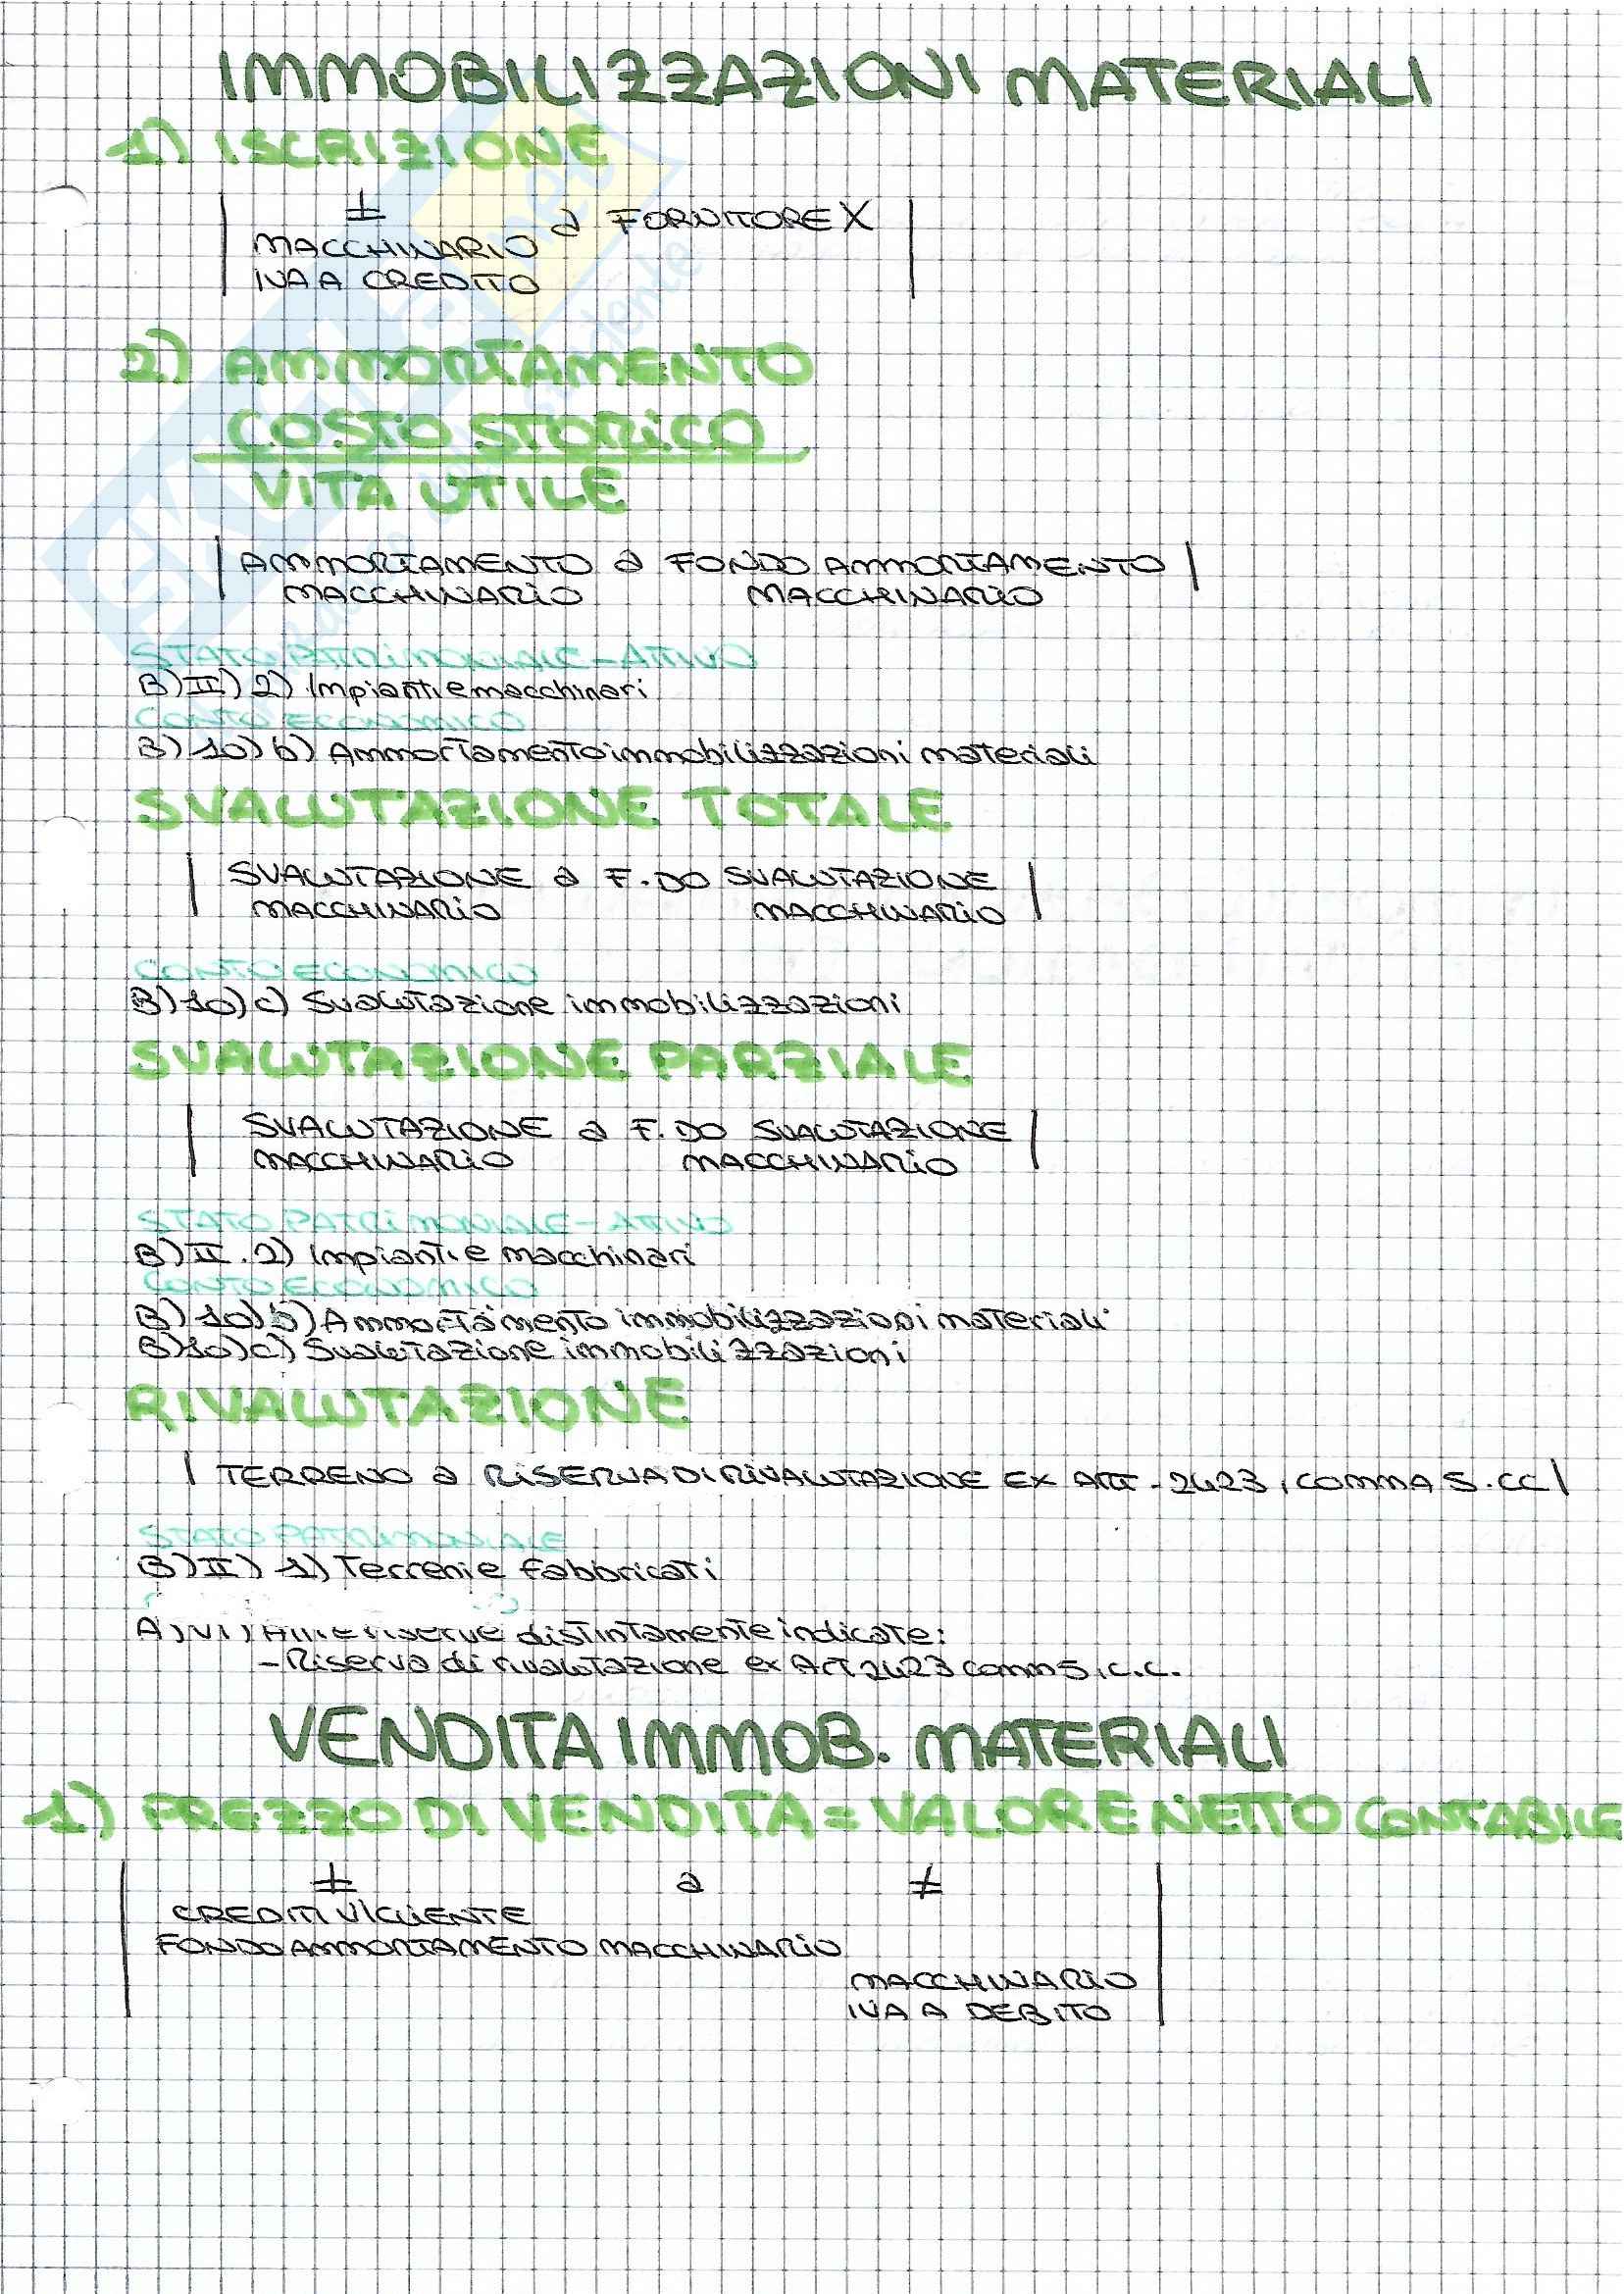 IMMOBILIZZAZIONI MATERIALI
1) ISCRIZIONE
≠ a FORNITORE X
MACCHINARIO
IVA A CREDITO
2) AMMORTAMENTO
COSTO STORICO
VITA UTILE
AMMORTAMENTO a FONDO AMMORTAMENTO
MACCHINARIO MACCHINARIO
STATO PATRIMONIALE - ATTIVO
B) II) 2) Impianti e macchinari
CONTO ECONOMICO
B) 10) b) Ammortamento immobilizzazioni materiali
SVALUTAZIONE TOTALE
SVALUTAZIONE a F.DO SVALUTAZIONE
MACCHINARIO MACCHINARIO
CONTO ECONOMICO
B) 10) c) Svalutazione immobilizzazioni
SVALUTAZIONE PARZIALE
SVALUTAZIONE a F.DO SVALUTAZIONE
MACCHINARIO MACCHINARIO
STATO PATRIMONIALE - ATTIVO
B) II. 2) Impianti e macchinari
CONTO ECONOMICO
B) 10) b) Ammortamento immobilizzazioni materiali
B) 10) c) Svalutazione immobilizzazioni
RIVALUTAZIONE
TERRENO a RISERVA DI RIVALUTAZIONE EX ART. 2423, COMMA 5. CC
STATO PATRIMONIALE
B) II) 1) Terreni e fabbricati
A) VI) Altre riserve distintamente indicate:
- Riserva di rivalutazione ex Art 2423 comm 5, c.c.
VENDITA IMMOB. MATERIALI
1) PREZZO DI VENDITA = VALORE NETTO CONTABILE
≠ a ≠
CREDITI V/CLIENTE
FONDO AMMORTAMENTO MACCHINARIO
MACCHINARIO
IVA A DEBITO